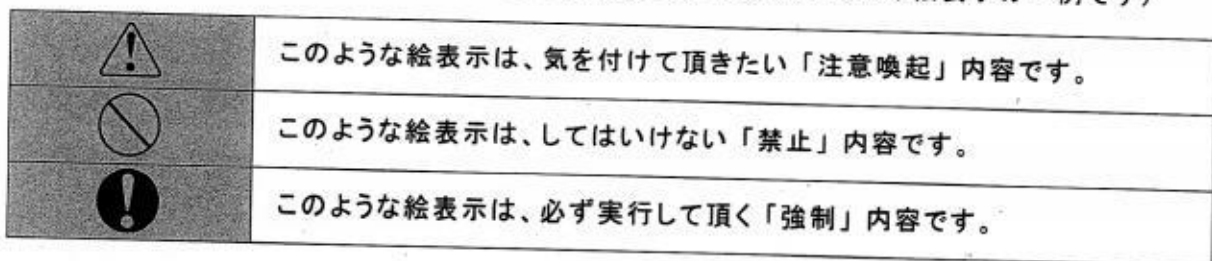 例です）
このような絵表示は、気を付けて頂きたい「注意喚起」内容です。
このような絵表示は、してはいけない「禁止」内容です。
このような絵表示は、必ず実行して頂く「強制」内容です。